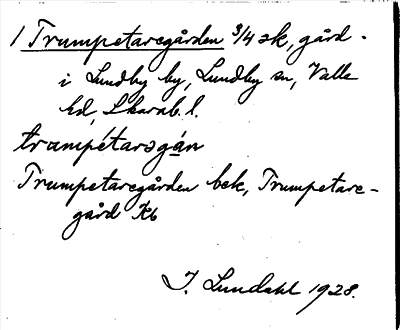 1 Trumpetaregården 3/4 sk, gård
i Lundby by, Lundby sn, Valle
hd, Skarab. l.
trumpétarsgán
Trumpetaregården bek, Trumpetare-
gård Kb
I. Lundahl 1928.